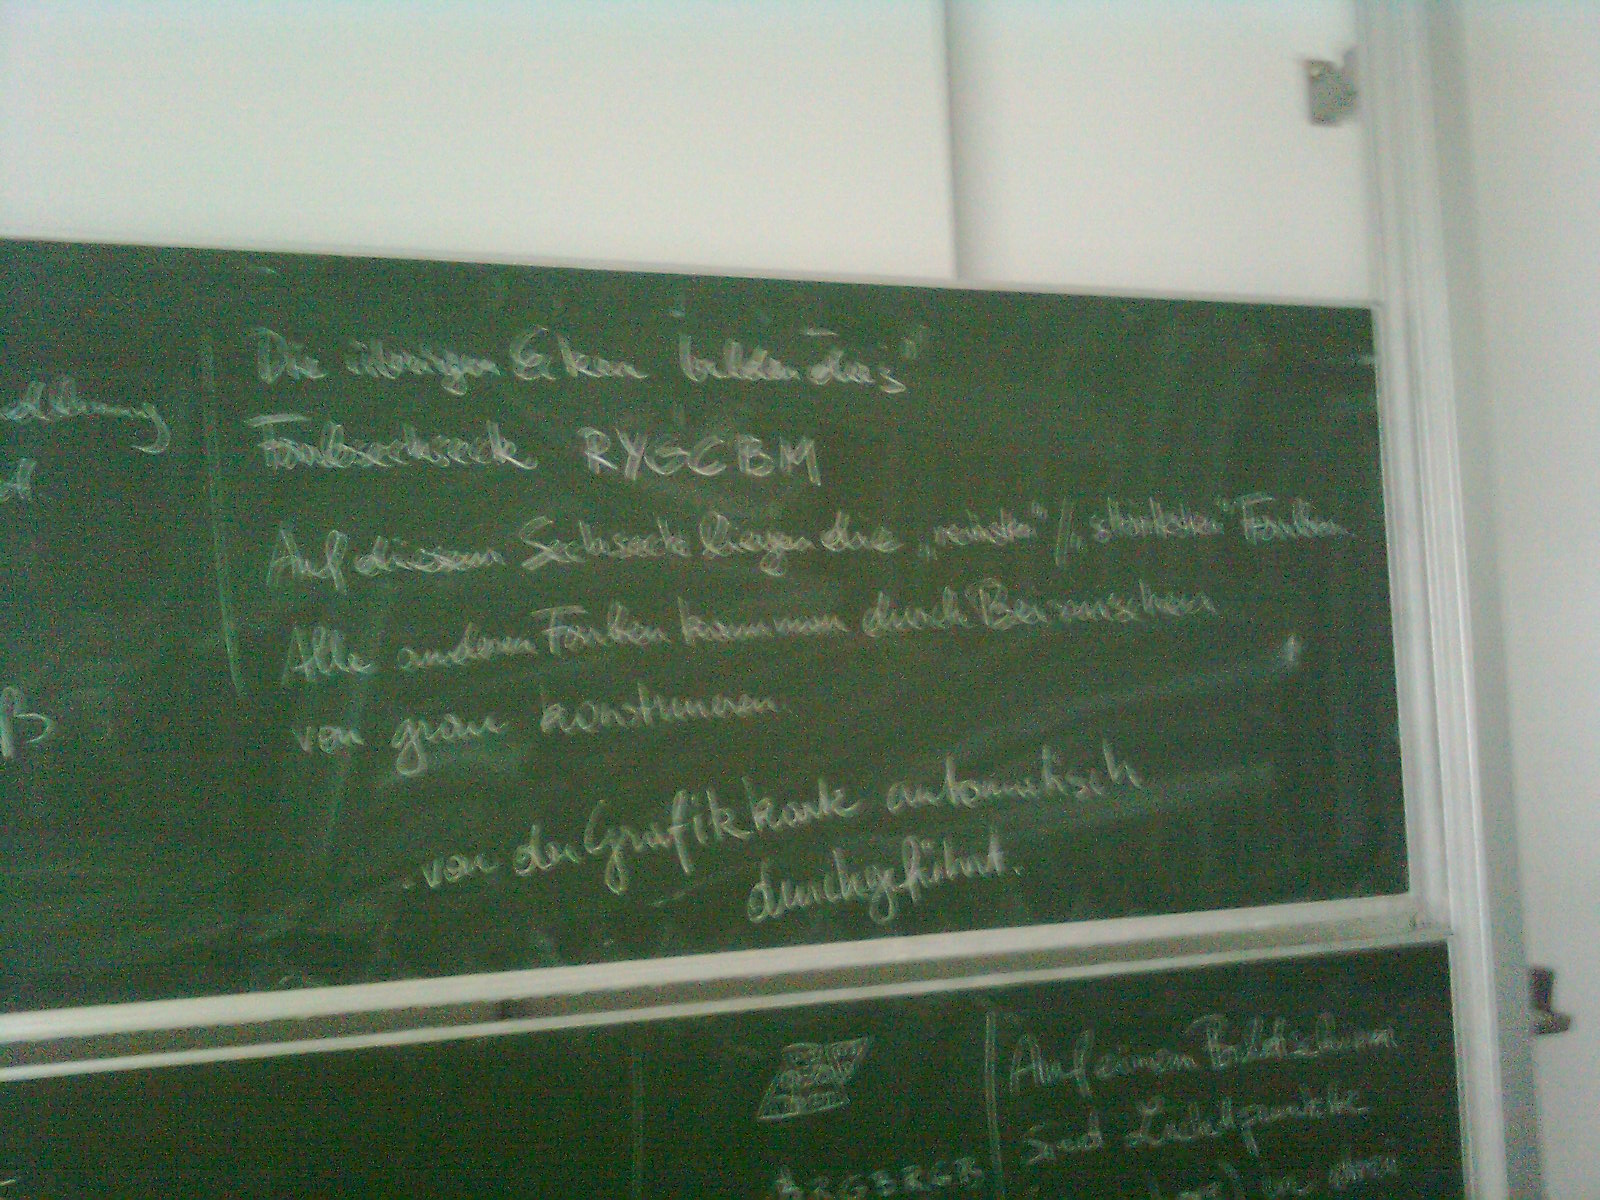 Die übrigen Ecken bilden das
Farbsechseck RYGCBM
Auf diesem Sechseck liegen die „reinsten"/„stärksten" Farben
Alle anderen Farben kann man durch Beimischen
von grau konstruieren.
von der Grafikkarte automatisch
durchgeführt.
Auf einem Bildschirm
sind Leuchtpunkte
RGBRGB